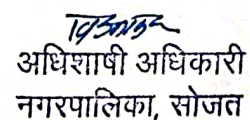 अधिशाषी अधिकारी
नगरपालिका, सोजत